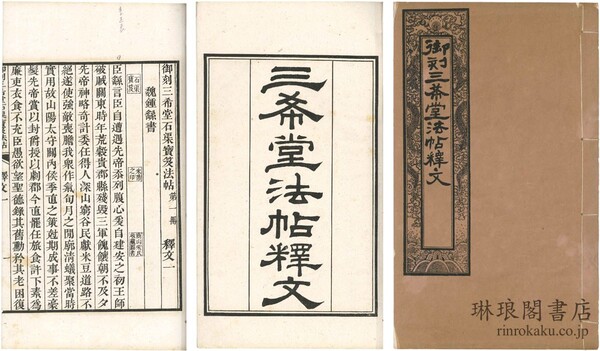 御刻三希堂法帖釋文
三希堂法帖釋文
御刻三希堂石渠寶笈法帖 第一冊 釋文一
魏鍾繇書
石渠寶笈
臣繇言臣自遭遇先帝忝列腹心爰自建安之初王師
破賊關東時年荒穀貴郡縣殘毀三軍餽饟朝不及夕
先帝神略奇計委任得人深山窮谷民獻米豆道路不
絕遂使強敵喪膽我衆作氣旬月之間廓清蟻聚當時
實用故山陽太守關內侯季直之策尅期成事不差豪
髮先帝賞以封爵授以劇郡今直罷任旅食許下素爲
廉吏衣食不充臣愚欲望聖德錄其舊勳矜其老困復
釋文一
琳琅閣書店
rinrokaku.co.jp